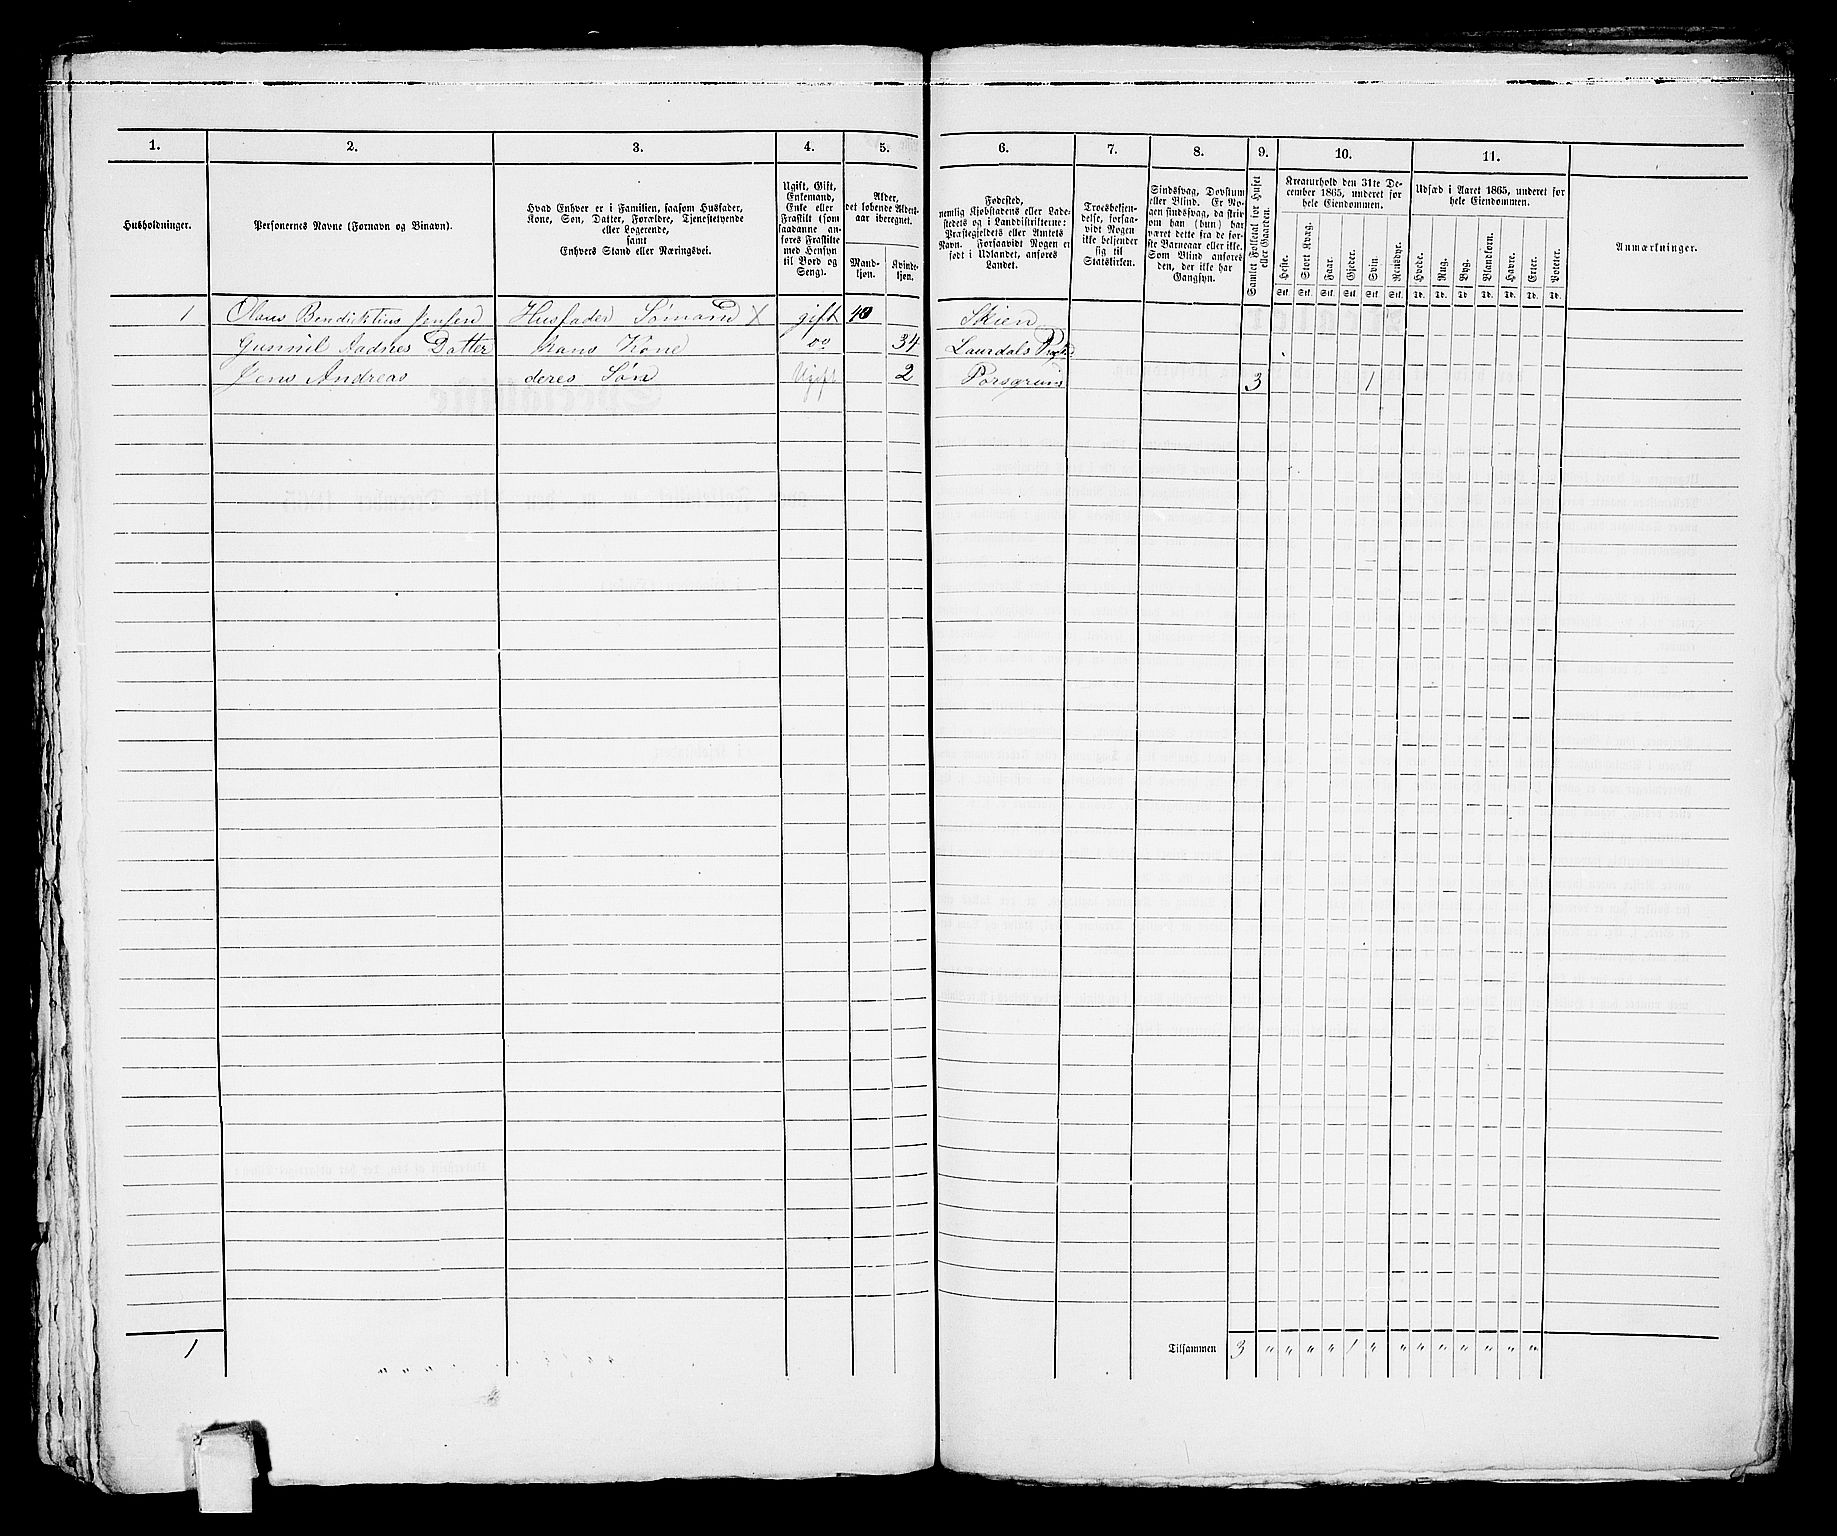 1. 2. 3. 4. 5. 6. 7. 8. 9. 10. 11.
Husholdninger.
Personernes Navne (Fornavn og Binavn).
Hvad Enhver er i Familien, saasom Husfader,
Kone, Søn, Datter, Forældre, Tjenestetyende
eller Logerende,
samt
Enhvers Stand eller Næringsvei.
Ugift, Gift,
Enkemand,
Enke eller
Fraskilt (som
saadanne an-
føres Fraskilte
med Hensyn
til Bord og
Seng).
Alder,
det løbende Alders-
aar iberegnet.
Mand-
kjøn.
Kvinde-
kjøn.
Fødested,
nemlig Kjøbstadens eller Lade-
stedets og i Landdistrikterne:
Præstegjeldets eller Amtets
Navn. Forsaavidt Nogen er
født i Udlandet, anføres
Landet.
Troesbekjen-
delse, forsaa-
vidt Nogen
ikke bekjender
sig til
Statskirken.
Sindssvag, Døvstum
eller Blind. Er No-
gen sindssvag, da skriv
om han (hun) har
været dette fra de før-
ste Barneaar eller ikke.
Som Blind anføres
den, der ikke har
Gangsyn.
Samlet Folketal for Huset
eller Gaarden.
Kreaturhold den 31te De-
cember 1865, underet for
hele Eiendommen.
Heste. Stort Kvæg. Faar. Gjeder. Svin. Rensdyr.
Stk. Stk. Stk. Stk. Stk. Stk.
Udsæd i Aaret 1865, underet for
hele Eiendommen.
Hvede. Rug. Byg. Blandkorn. Havre. Erter. Poteter.
Td. Td. Td. Td. Td. Td. Td.
Anmærkninger.
1 Olaus Bendiktius Jensen Husfader Sømand X gift 40 Skien
Gunnil Aadnes Datter hans Kone do 34 Laurdals
Jens Andreas deres Søn Ugift 2 Porsgrund 3 1
1 Tilsammen 3 " " " " 1 " " " " " " "